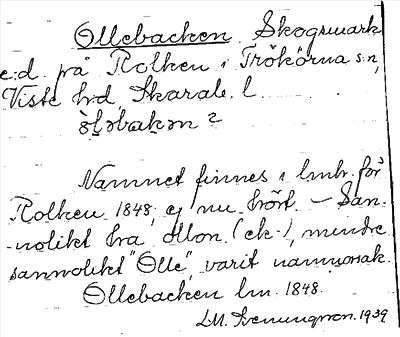 Ollebacken Skogsmark
e.d. på Rolken i Trökörna s:n,
Viste h:d, Skarab. l.
ò̀l̀əbàkən 2
Namnet finnes i lmh. för
Rolken 1848, ej nu hört. – San-
-nolikt fra ollon (ek-), mindre
sannolikt "Olle", varit namnorsak.
Ollebacken lm. 1848.
1939